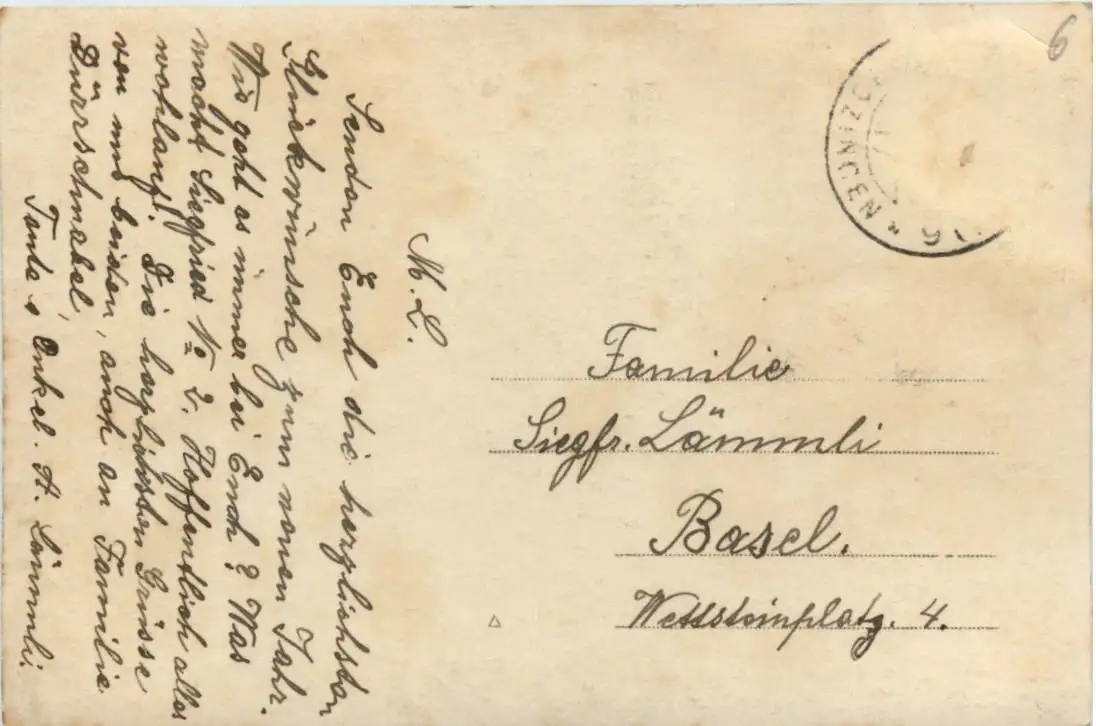 6
M. L.
Senden Euch die herzlichsten
Glückwünsche zum neuen Jahr.
Wie geht es immer bei Euch? Was
macht Siegfried No 2. Hoffentlich alles
wohlauf! Die herzlichsten Grüsse
von uns beiden, auch an Familie
Dürrschnabel,
Tante & Onkel. A. Lämmli.
Familie
Siegfr. Lämmli
Basel.
Wettsteinplatz. 4.